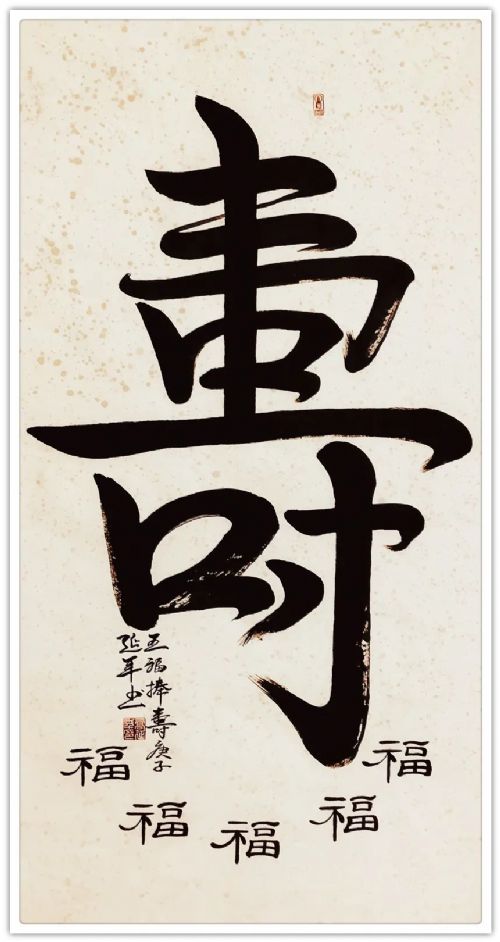 壽
五福捧壽庚子
延年书
福福福福福